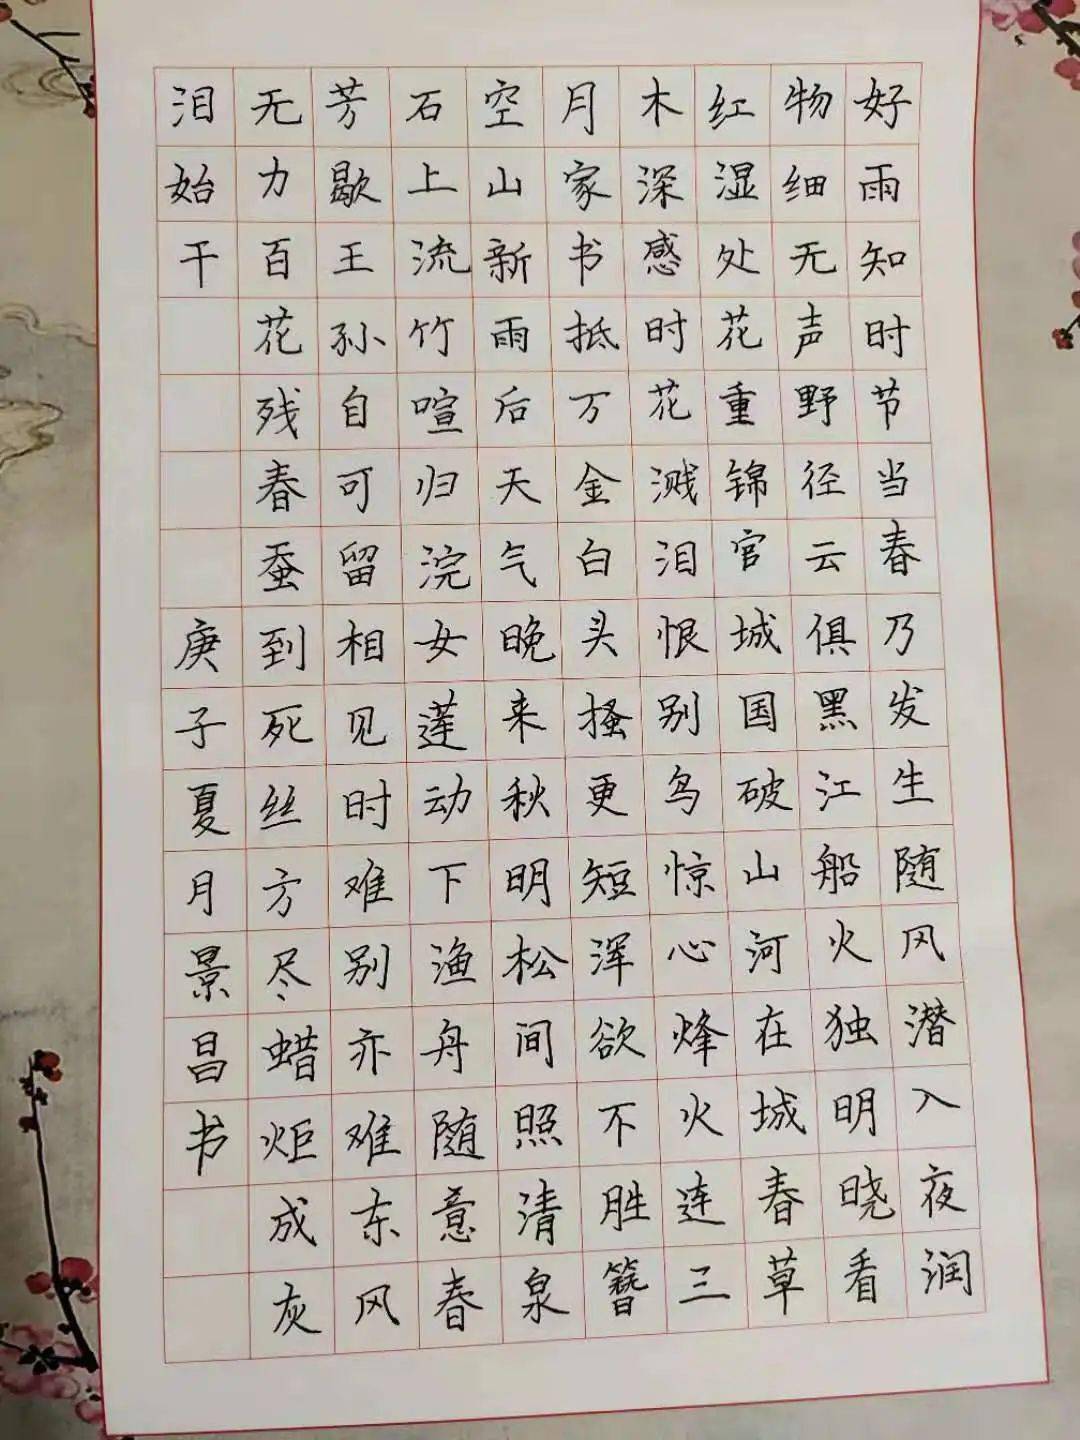 好雨知时节当春乃发生随风潜入夜润
物细无声野径云俱黑江船火独明晓看
红湿处花重锦官城国破山河在城春草
木深感时花溅泪恨别鸟惊心烽火连三
月家书抵万金白头搔更短浑欲不胜簪
空山新雨后天气晚来秋明松间照清泉
石上流竹喧归浣女莲动下渔舟随意春
芳歇王孙自可留相见时难别亦难东风
无力百花残春蚕到死丝方尽蜡炬成灰
泪始干 庚子夏月景昌书